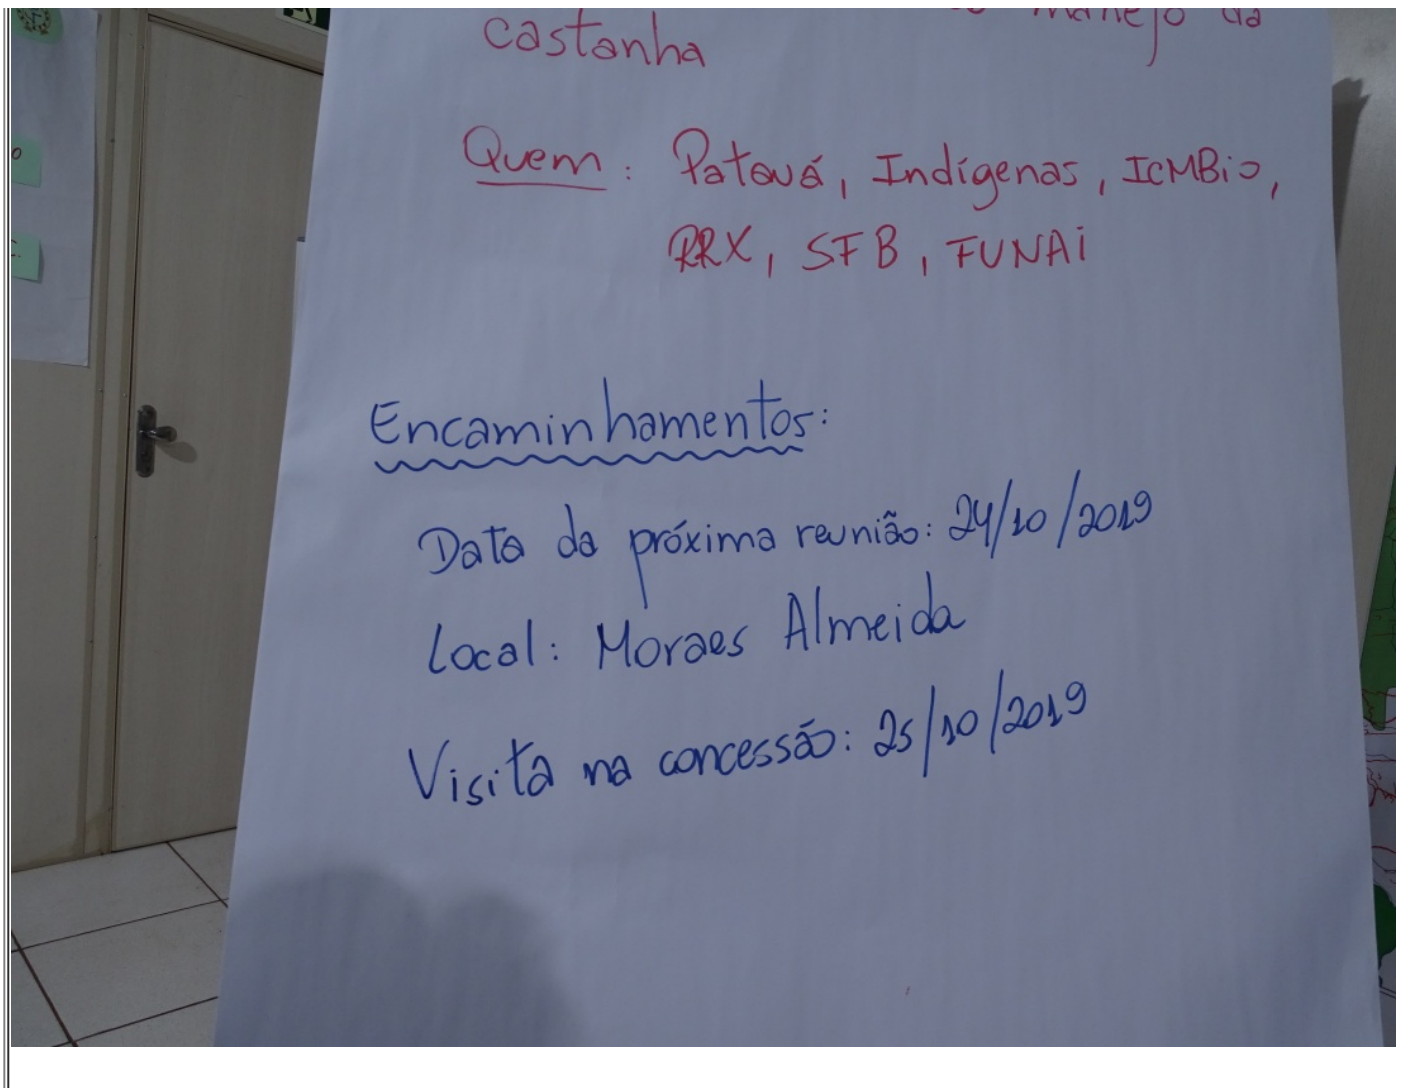 manejo da
castanha
Quem: Patauá, Indígenas, ICMBio,
RRX, SFB, FUNAi
Encaminhamentos:
Data da próxima reunião: 24/10/2019
Local: Moraes Almeida
Visita na concessão: 25/10/2019